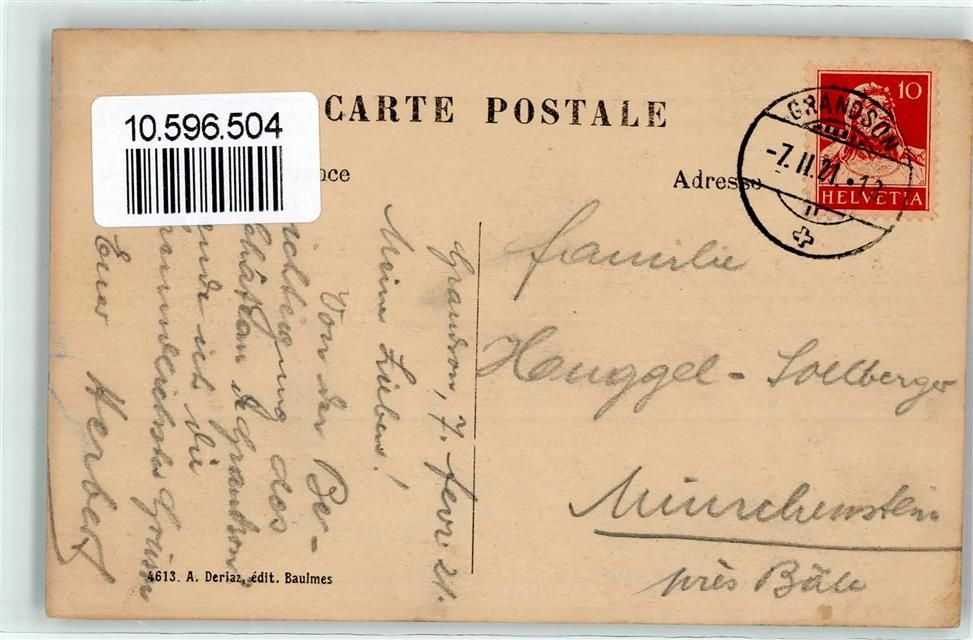 10.596.504
CARTE POSTALE
nce
Adresse
10
HELVETIA
GRANDSON
-7.II.21.-12
Grandson, 7. fevr 21.
Meine Lieben!
Von der Be-
sichtigung des
Château de Grandson
sende ich die
freundlichsten Grüsse
Euer Herbert
Familie
Heuggel - Sollberger
Münchenstein
près Bâle
4613. A. Deriaz, édit. Baulmes